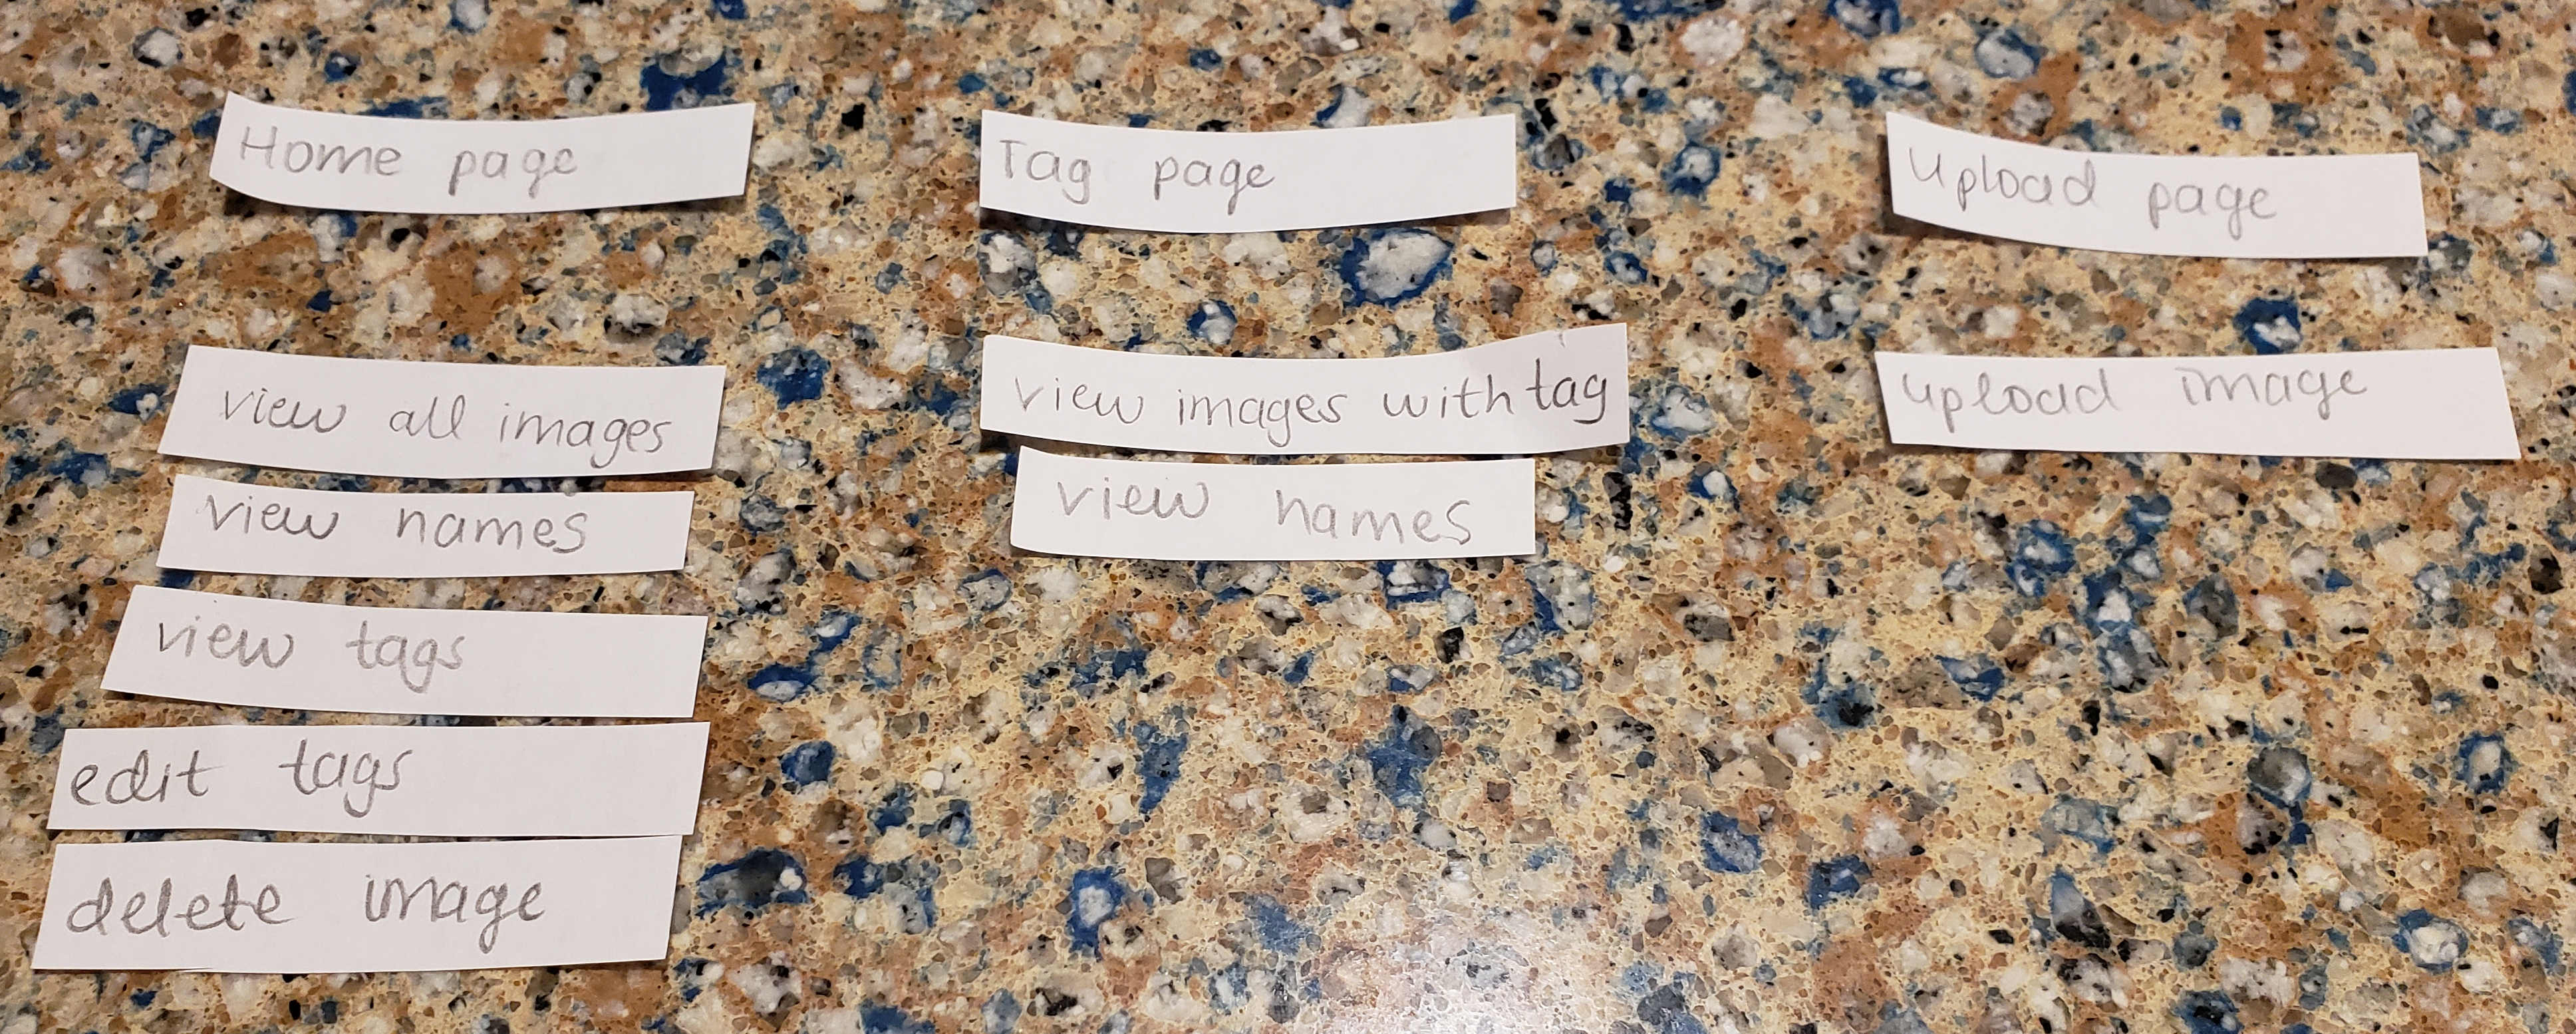 Home page
view all images
view names
view tags
edit tags
delete image
Tag page
view images with tag
view names
upload page
upload image